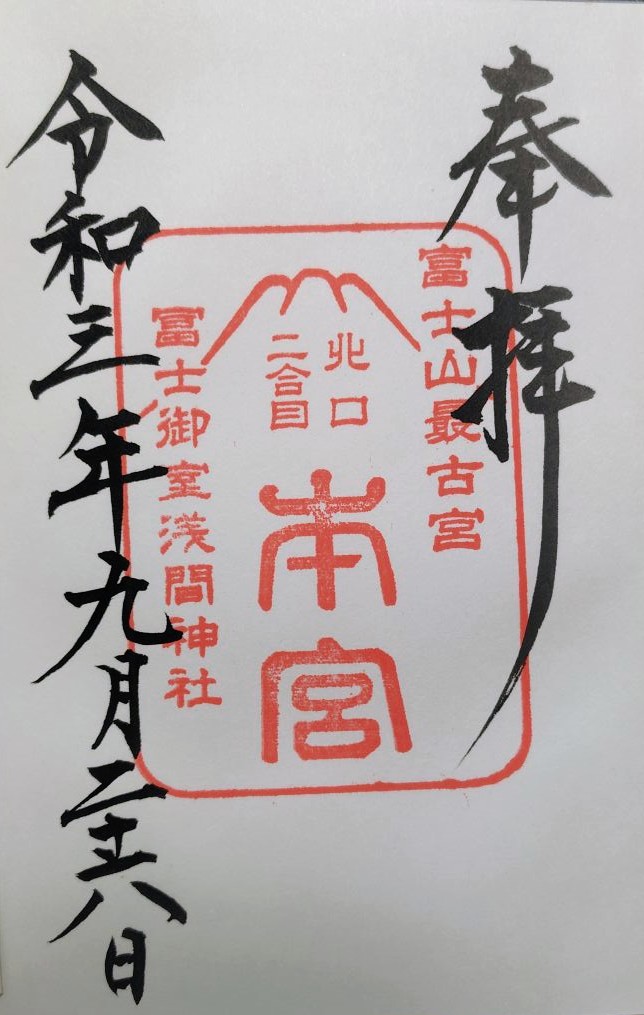 奉拝
富士山最古宮
北口
二合目
本宮
冨士御室浅間神社
令和三年九月二十六日